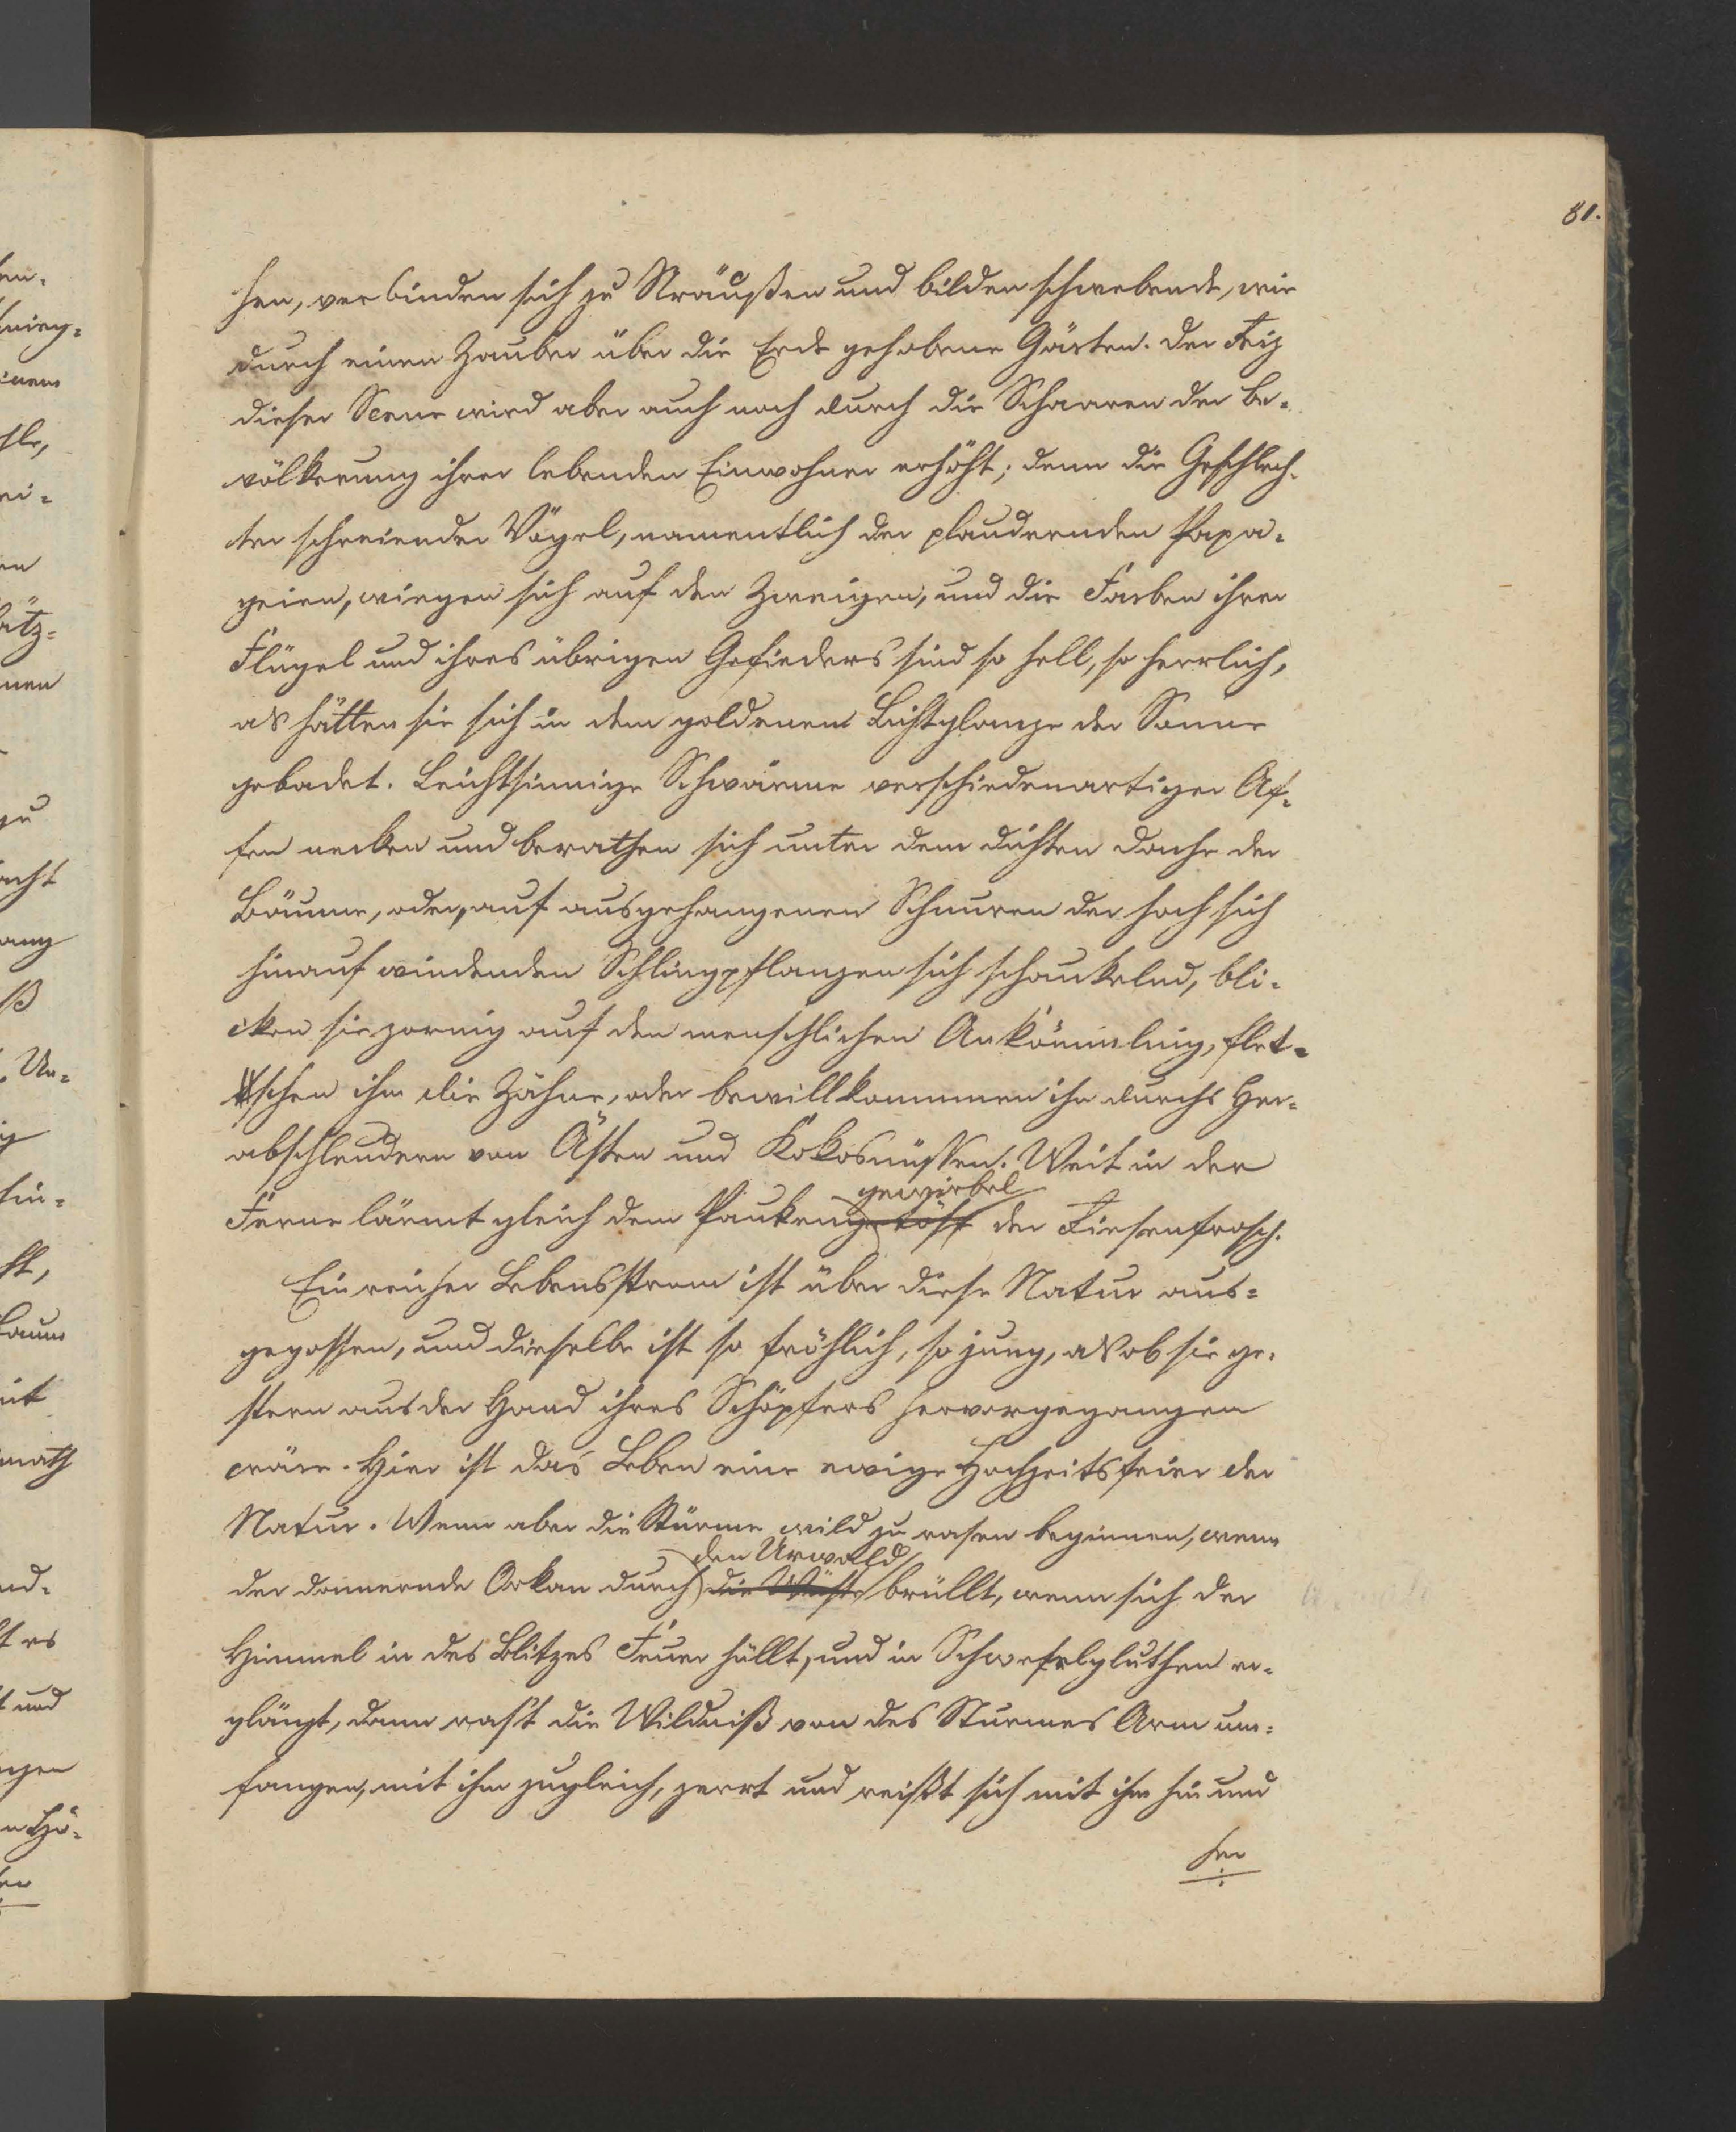 81.
hen, verbinden sich zu Sträußen und bilden schwebende, wie
durch einen Zauber über die Erde gehobene Gärten. Der Reiz
dieser Scene wird aber auch noch durch die Schaaren der Be-
völkerung ihrer lebenden Einwohner erhöht; denn die Geschlech-
ter schreiender Vögel, namentlich der plaudernden Papa-
geien, wiegen sich auf den Zweigen, und die Farben ihrer
Flügel und ihres übrigen Gefieders sind so hell, so herrlich,
als hätten sie sich in dem goldenen Lichtglanze der Sonne
gebadet. Leichtsinnige Schwärme verschiedenartiger Af-
fen necken und berathen sich unter dem dichten Dache der
Bäume, oder, auf ausgehangenen Schnuren der hoch sich
hinauf windenden Schlingpflanzen sich schaukelnd, bli-
cken sie zornig auf den menschlichen Ankömmling, flet-
schen ihm die Zähne, oder bewillkommen ihn durchs Her-
abschleudern von Ästen und Kokosnüssen. Weit in der
gewirbel
Ferne lärmt gleich dem Paukengetös der Riesenfrosch.
Ein reicher Lebensstrom ist über diese Natur aus-
gegossen, und dieselbe ist so fröhlich, so jung, als ob sie ge-
stern aus der Hand ihres Schöpfers hervorgegangen
wäre. Hier ist das Leben eine ewige Hochzeitsfeier der
Natur. Wenn aber die Stürme wild zu rasen beginnen, wenn
den Urwald
der donnernde Orkan durch die Wüste brüllt, wenn sich der
Himmel in des Blitzes Feuer hüllt, und in Schwefelgluthen er-
glänzt, dann rast die Wildniß von des Sturmes Arm um-
fangen, mit ihm zugleich, zerrt und reißt sich mit ihm hin und
her